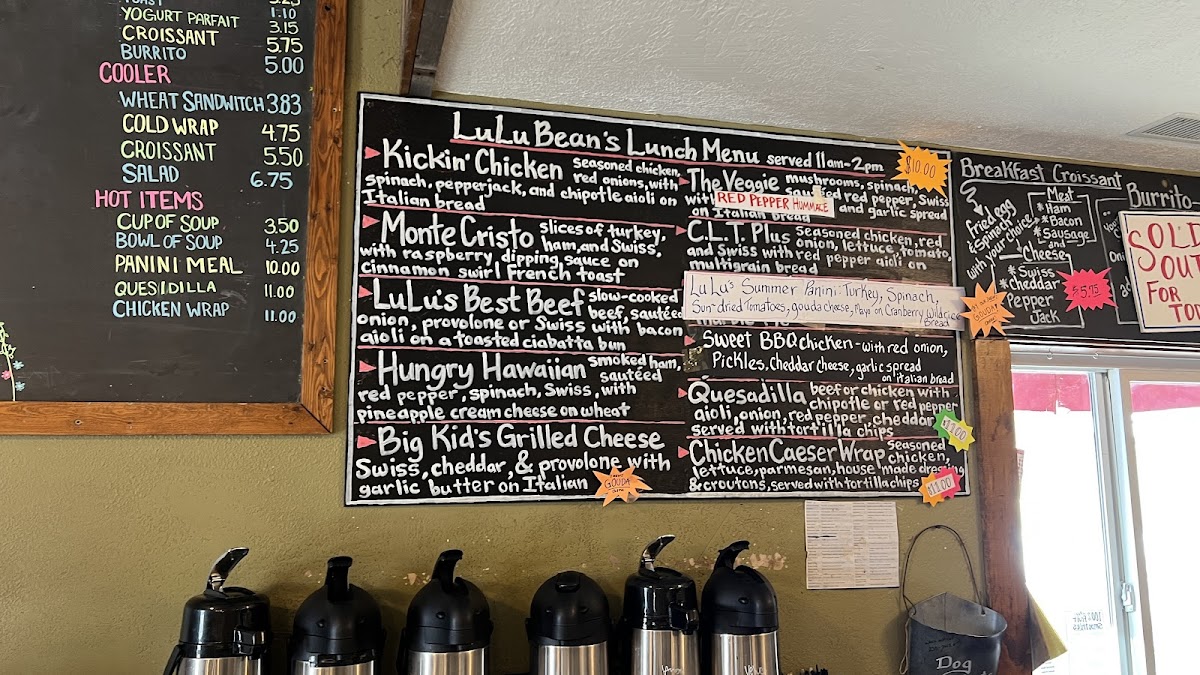 TOAST 3.25
YOGURT PARFAIT 1.10
CROISSANT 3.15
BURRITO 5.75
5.00
COOLER
WHEAT SANDWITCH 3.83
COLD WRAP 4.75
CROISSANT 5.50
SALAD 6.75
HOT ITEMS
CUP OF SOUP 3.50
BOWL OF SOUP 4.25
PANINI MEAL 10.00
QUESIDILLA 11.00
CHICKEN WRAP 11.00
LuLu Bean's Lunch Menu served 11am-2pm
$10.00
Kickin' Chicken seasoned chicken,
red onions, with
spinach, pepperjack, and chipotle aioli on
Italian bread
Monte Cristo slices of turkey,
ham, and Swiss,
with raspberry dipping sauce on
cinnamon swirl French toast
LuLu's Best Beef slow-cooked
beef, sautéed
onion, provolone or Swiss with bacon
aioli on a toasted ciabatta bun
Hungry Hawaiian smoked ham,
sautéed
red pepper, spinach, Swiss, with
pineapple cream cheese on wheat
Big Kid's Grilled Cheese
Swiss, cheddar, & provolone with
garlic butter on Italian
GOUDA
The Veggie mushrooms, spinach,
sautéed red pepper, Swiss
with RED PEPPER HUMMACE and garlic spread
on Italian bread
C.L.T. Plus seasoned chicken, red
onion, lettuce, tomato,
and Swiss with red pepper aioli on
multigrain bread
LuLu's Summer Panini: Turkey, Spinach,
Sun-dried Tomatoes, gouda cheese, Mayo on Cranberry Wildrice
Bread
Sweet BBQ chicken - with red onion,
Pickles, Cheddar cheese, garlic spread
on italian bread
Quesadilla beef or chicken with
chipotle or red pepper
aioli, onion, red pepper, cheddar
served with tortilla chips
$11.00
Chicken Caeser Wrap seasoned
chicken,
lettuce, parmesan, house made dressing
& croutons, served with tortilla chips
$11.00
Breakfast Croissant
Fried egg
+ spinach
with your choice
Meat
*Ham
*Bacon
*Sausage
and
Cheese
*Swiss
*Cheddar
*Pepper
Jack
$5.75
Burrito
SOLD
OUT
FOR
Dog